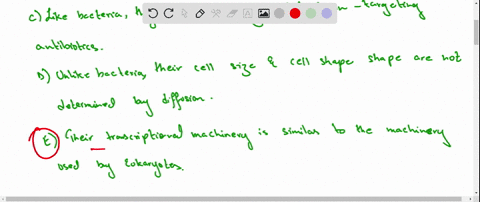 C) Like bacteria, targeting
antibiotics.
D) Unlike bacteria, their cell size & cell shape shape are not
determined by diffusion.
E) Their transcriptional machinery is similar to the machinery
used by Eukaryotes.